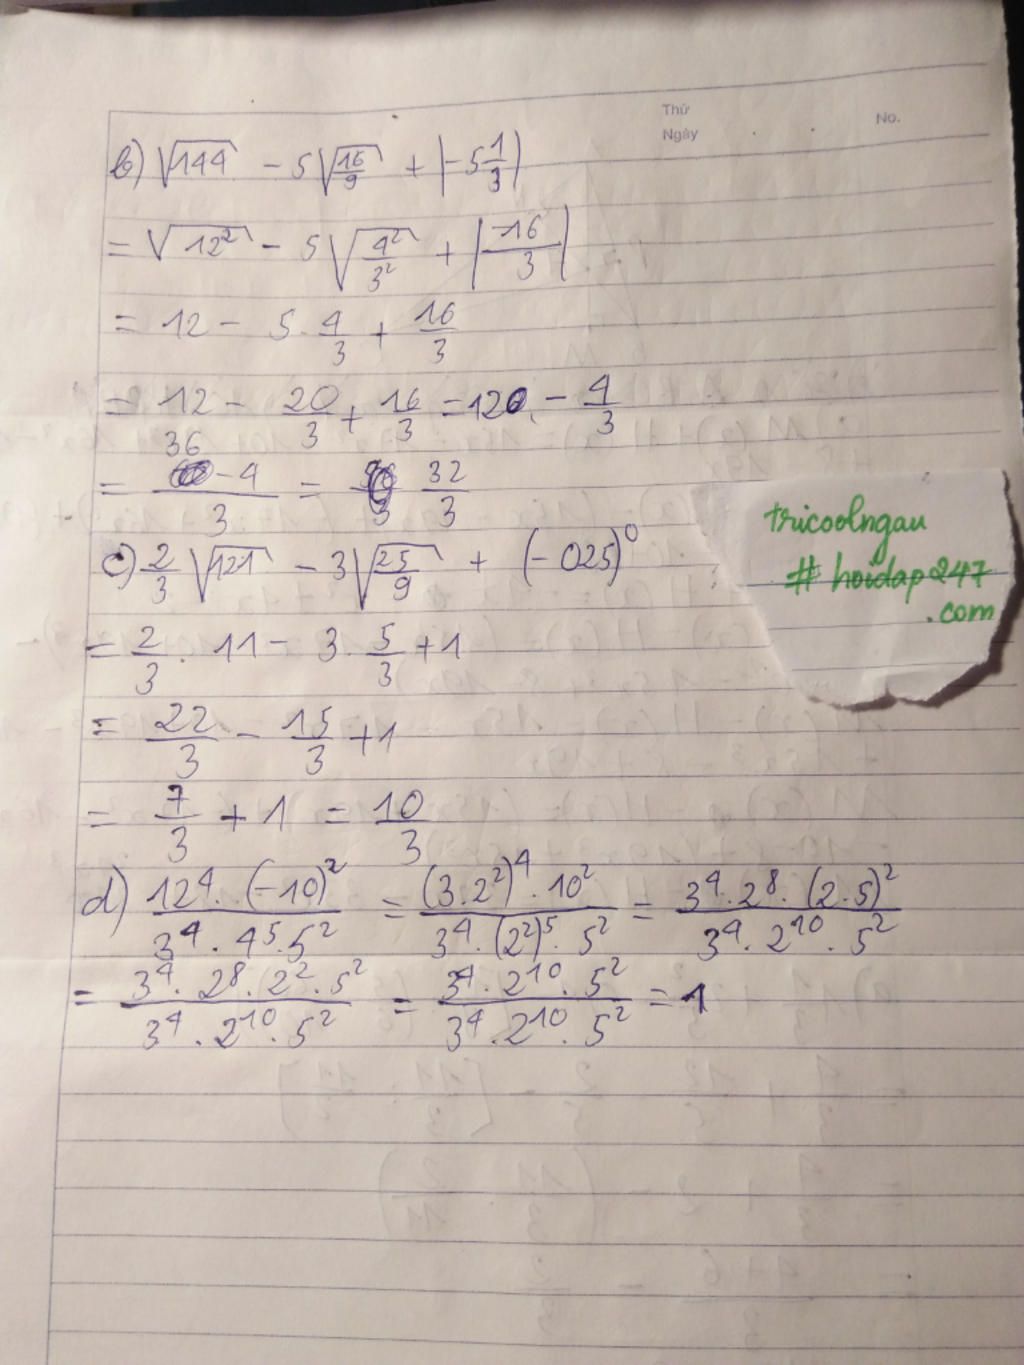 Thứ
Ngày
No.
b) √144 - 5√(16/9) + |-5 1/3|
= √12² - 5√(4²/3²) + |-16/3|
= 12 - 5 . 4/3 + 16/3
= 12 - 20/3 + 16/3 = 12 - 4/3
= (36 - 4)/3 = 32/3
c) 2/3 √121 - 3√(25/9) + (-025)⁰
= 2/3 . 11 - 3 . 5/3 + 1
= 22/3 - 15/3 + 1
= 7/3 + 1 = 10/3
d) (12⁴ . (-10)²)/(3⁴ . 4⁵ . 5²) = ((3.2²)⁴ . 10²)/(3⁴ . (2²)⁵ . 5²) = (3⁴ . 2⁸ . (2.5)²)/(3⁴ . 2¹⁰ . 5²)
= (3⁴ . 2⁸ . 2² . 5²)/(3⁴ . 2¹⁰ . 5²) = (3⁴ . 2¹⁰ . 5²)/(3⁴ . 2¹⁰ . 5²) = 1
tricoolngau
# hoidap247
.com